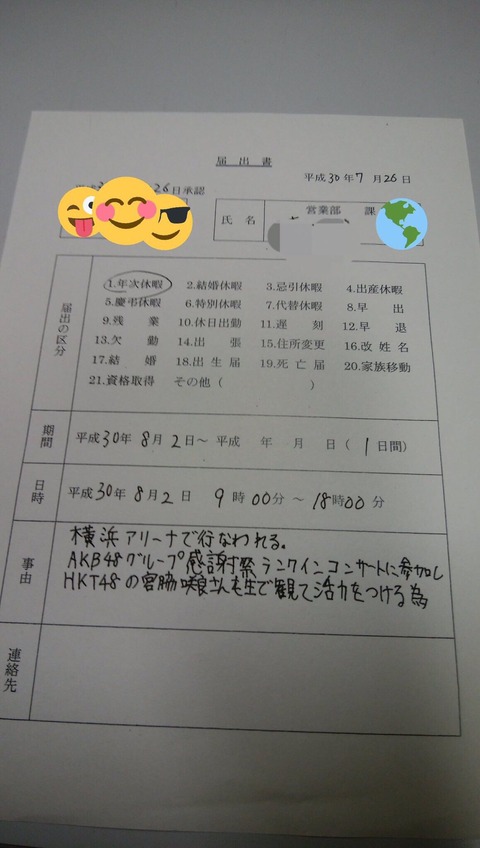 届出書
平成30年7月26日
26日承認
氏名
営業部 課
届出の区分
1.年次休暇 2.結婚休暇 3.忌引休暇 4.出産休暇
5.慶弔休暇 6.特別休暇 7.代替休暇 8.早出
9.残業 10.休日出勤 11.遅刻 12.早退
13.欠勤 14.出張 15.住所変更 16.改姓名
17.結婚 18.出生届 19.死亡届 20.家族移動
21.資格取得 その他( )
期間
平成30年8月2日〜平成 年 月 日(1日間)
日時
平成30年8月2日 9時00分〜18時00分
事由
横浜アリーナで行なわれる。
AKB48グループ感謝祭ランクインコンサートに参加し
HKT48の宮脇咲良さんを生で観て活力をつける為
連絡先